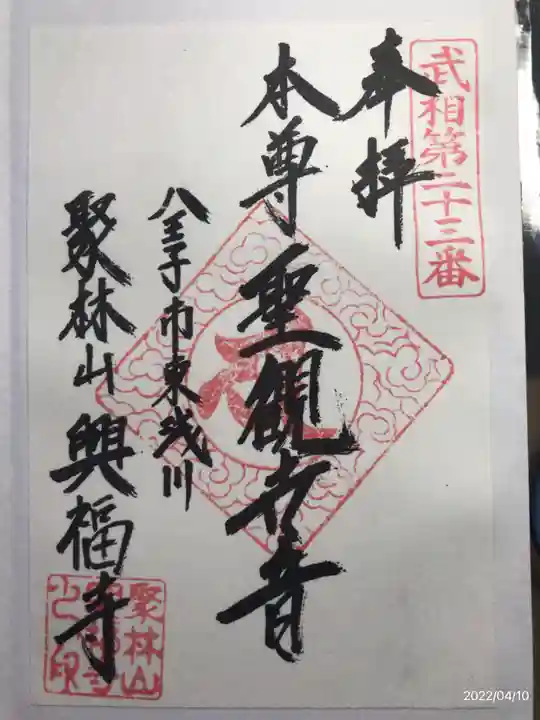 武相第二十三番
奉拝
本尊聖観世音
八王子市東浅川
聚林山興福寺
聚林山
2022/04/10